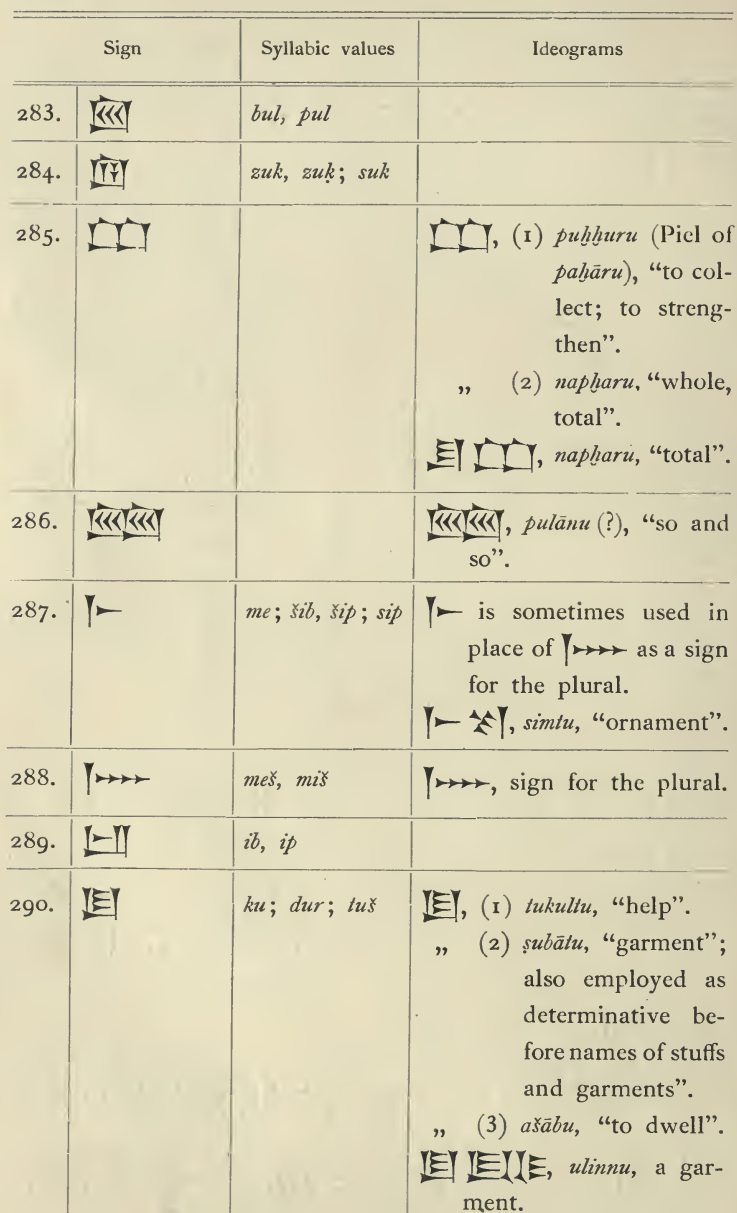 Sign Syllabic values Ideograms
283. bul, pul
284. zuk, zuḳ; suk
285. 𒆸𒆸 𒆸𒆸, (1) puḫḫuru (Piel of
paḫāru), “to col-
lect; to streng-
then”.
„ (2) napḫaru, “whole,
total”.
𒋗 𒆸𒆸, napḫaru, “total”.
286. pulānu (?), “so and
so”.
287. 𒈨 me; šib, šip; sip 𒈨 is sometimes used in
place of 𒈨𒌍 as a sign
for the plural.
𒈨 𒋼, simtu, “ornament”.
288. 𒈨𒌍 meš, miš 𒈨𒌍, sign for the plural.
289. 𒅁 ib, ip
290. 𒆪 ku; dur; tuš 𒆪, (1) tukultu, “help”.
„ (2) ṣubātu, “garment”;
also employed as
determinative be-
fore names of stuffs
and garments”.
„ (3) ašābu, “to dwell”.
ulinnu, a gar-
ment.